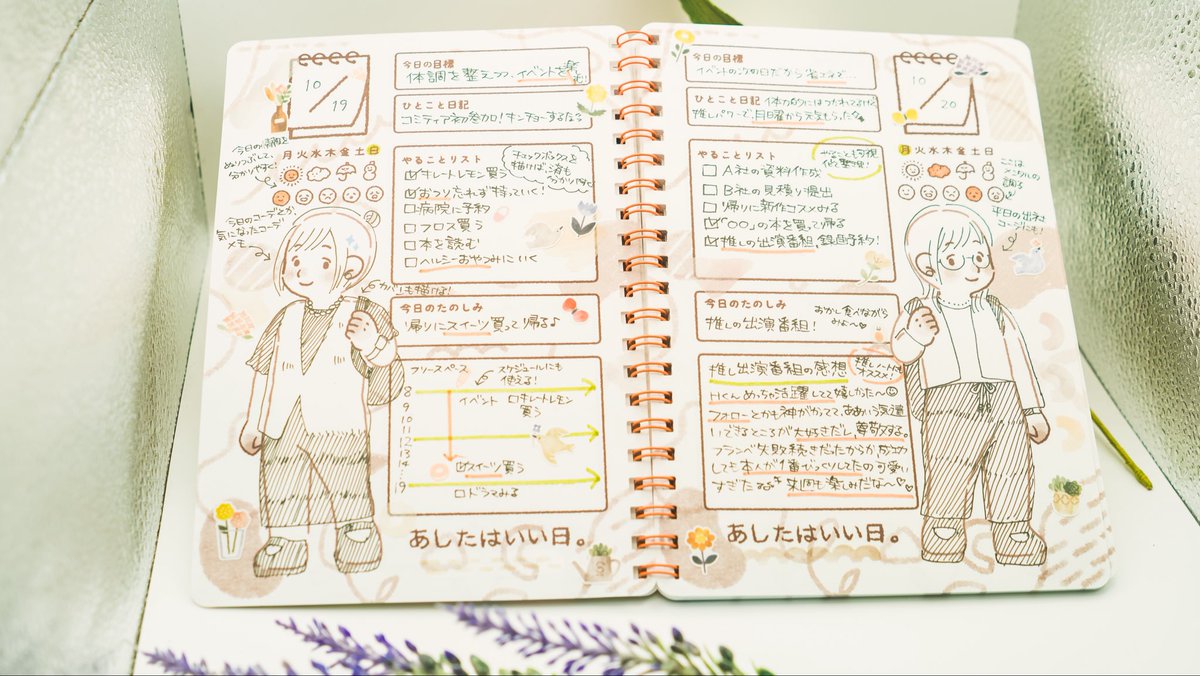 10/19
今日の目標
体調を整えて、イベントを楽しむ
ひとこと日記
コミティア初参加!キンチョーするなぁ
今日の調子を
ぬりつぶして、
分かりやすく!
月火水木金土日
今日のコーデとか、
気になったコーデ
メモ
カバンも描けた!
やることリスト
チェックボックスを
描けば済も
分かりやすく
キレートレモン買う
おつり忘れず持っていく!
病院に予約
フロス買う
本を読む
ヘルシーおやつみにいく
今日のたのしみ
帰りにスイーツ買って帰る♪
フリースペース
スケジュールにも
使える!
8
9
10
11
12
13
14
19
イベント
キレートレモン
買う
スイーツ買う
ドラマみる
あしたはいい日。
10/20
今日の目標
イベントの次の日だから
ひとこと日記
体力的にはつかれてるけど
推しパワーで、月曜から元気もらった
月火水木金土日
ここは
メンタルの
調子を
平日の出社
コーデにも!
やることリスト
やることも可視
化&整理!
A社の資料作成
B社の見積り提出
帰りに新作コスメみる
「○○」の本を買って帰る
推しの出演番組、録画予約!
今日のたのしみ
推しの出演番組!
おかし食べながら
みよ〜♡
推し出演番組の感想
推しノートにも
オススメ!
Hくんめっちゃ活躍してて嬉しかった〜☺
フォローとかも神がかってて、ああいう気遣
いできるところが大好きだし、尊敬する。
フランベ失敗続きだったからか、成功
しても本人が1番びっくりしてたの可愛い
すぎたな 来週も楽しみだな〜♡♡
あしたはいい日。